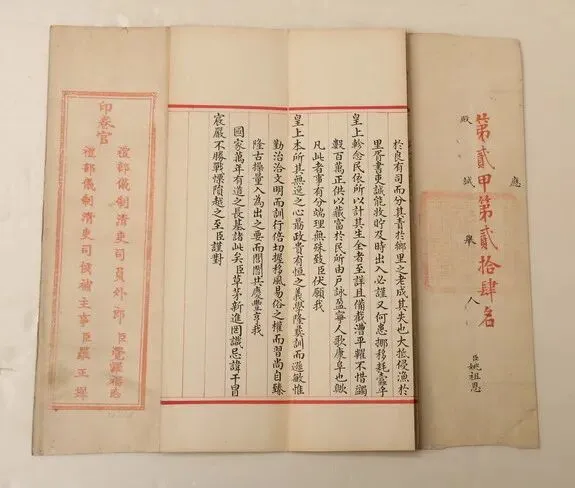 應
殿試舉人臣姚祖恩
第貳甲第貳拾肆名
於良有司而分其責於鄉里之老成其失也大抵侵漁於
里胥書吏誠能斂貯及時出入必謹又何患挪移耗蠹乎
皇上軫念民依所以計其生全者至詳且備截漕平糶不惜蠲
數百萬正供以藏富於民所由戶詠盈寧人歌康阜也歟
凡此者事有分端理無殊致臣伏願我
皇上本所其無逸之心勗政貴有恆之義學隆彝訓而遜敏惟
勤治洽文明而訓行倍切握移風易俗之權而習尚自臻
隆古操量入為出之要而閭閻共慶豐亨我
國家萬年有道之長基諸此矣臣草茅新進罔識忌諱干冒
宸嚴不勝戰慄隕越之至臣謹對
印卷官
禮部儀制清吏司員外郎臣覺羅
禮部儀制清吏司候補主事臣羅正墀